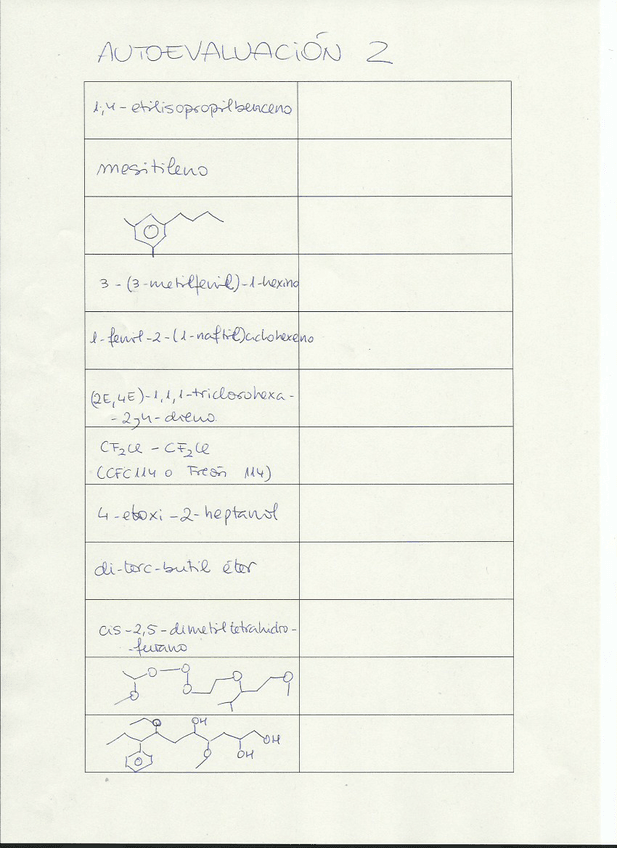 AUTOEVALUACIÓN 2
1,4-etilisopropilbenceno
mesitileno
3-(3-metilfenil)-1-hexino
1-fenil-2-(1-naftil)ciclohexeno
(2E,4E)-1,1,1-triclorohexa-
-2,4-dieno
CF₂Cl - CF₂Cl
(CFC 114 o Freón 114)
4-etoxi-2-heptanol
di-terc-butil éter
cis-2,5-dimetiltetrahidro-
-furano
O O O
O O O
O OH
OH
O OH